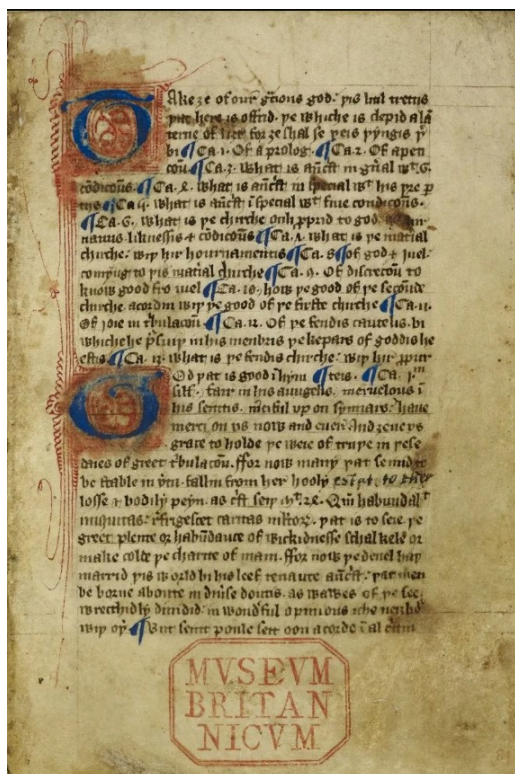 Take ȝe of our gcious god. þis litil tretis
þat here is offrid. þe whiche is clepid a lā
terne of liȝt for ȝe shal se þeis þyngis þ
bi ¶Ca. 1. Of a prolog. ¶Ca. 2. Of aperi
coū. ¶Ca. 3. what is aūcst in gn̄al wt. 6.
cōdicoūs. ¶Ca. 4. what is aūcst in special wt his pre p
ties ¶Ca. 5. what is aūcst ī special wt fiue condicoūs.
¶Ca. 6. what is þe chirche onli ꝓprid to god.
names liknessis & cōdicoūs ¶Ca. 7. what is þe matial
chirche. wiþ hir hournamentis ¶Ca. 8. of good & yuel
comyng to þis matial chirche ¶Ca. 9. Of discrecoū to
know good fro yuel ¶Ca. 10. how þe good of þe secoūde
chirche acordiþ wiþ þe good of þe firste chirche ¶Ca. 11.
Of ioie in tbulacoū. ¶Ca. 12. Of þe fendis cautelis. bi
whiche he psuiþ in his menbris þe kepars of goddis he
estis ¶Ca. 13. what is þe fendis chirche. wiþ hir ꝓpir
God þat is good ī hym ¶teis. ¶Ca. 1m
silf. fair in his aungelis. merueilous ī
his seintis. mciful up on synnars. haue
merci on us now and euer. And ȝeue us
grace to holde þe weie of truþe in þese
daies of greet tbulacoū. ffor now many þat semid to
be stable in vtu. fallen from her hooly
losse & bodily peyn. as cst seiþ mt. 24. Qm̄ habundabt
iniquitas. refrigescet caritas mltor. þat is to seie. þe
greet plente or habūdaūce of wickidnesse schal kele or
make colde þe charite of mani. ffor now þe deuel haþ
marrid þis world bi his leef tenaūte aūcst. þat men
be borne aboute in diuse doutis. as wawes of þe see.
wrecchidly diuidid. in wondful opinious iche neiȝbo
wiþ oþ. ¶But seint poule seiþ oon acorde ī al
MVSEVM
BRITAN
NICVM